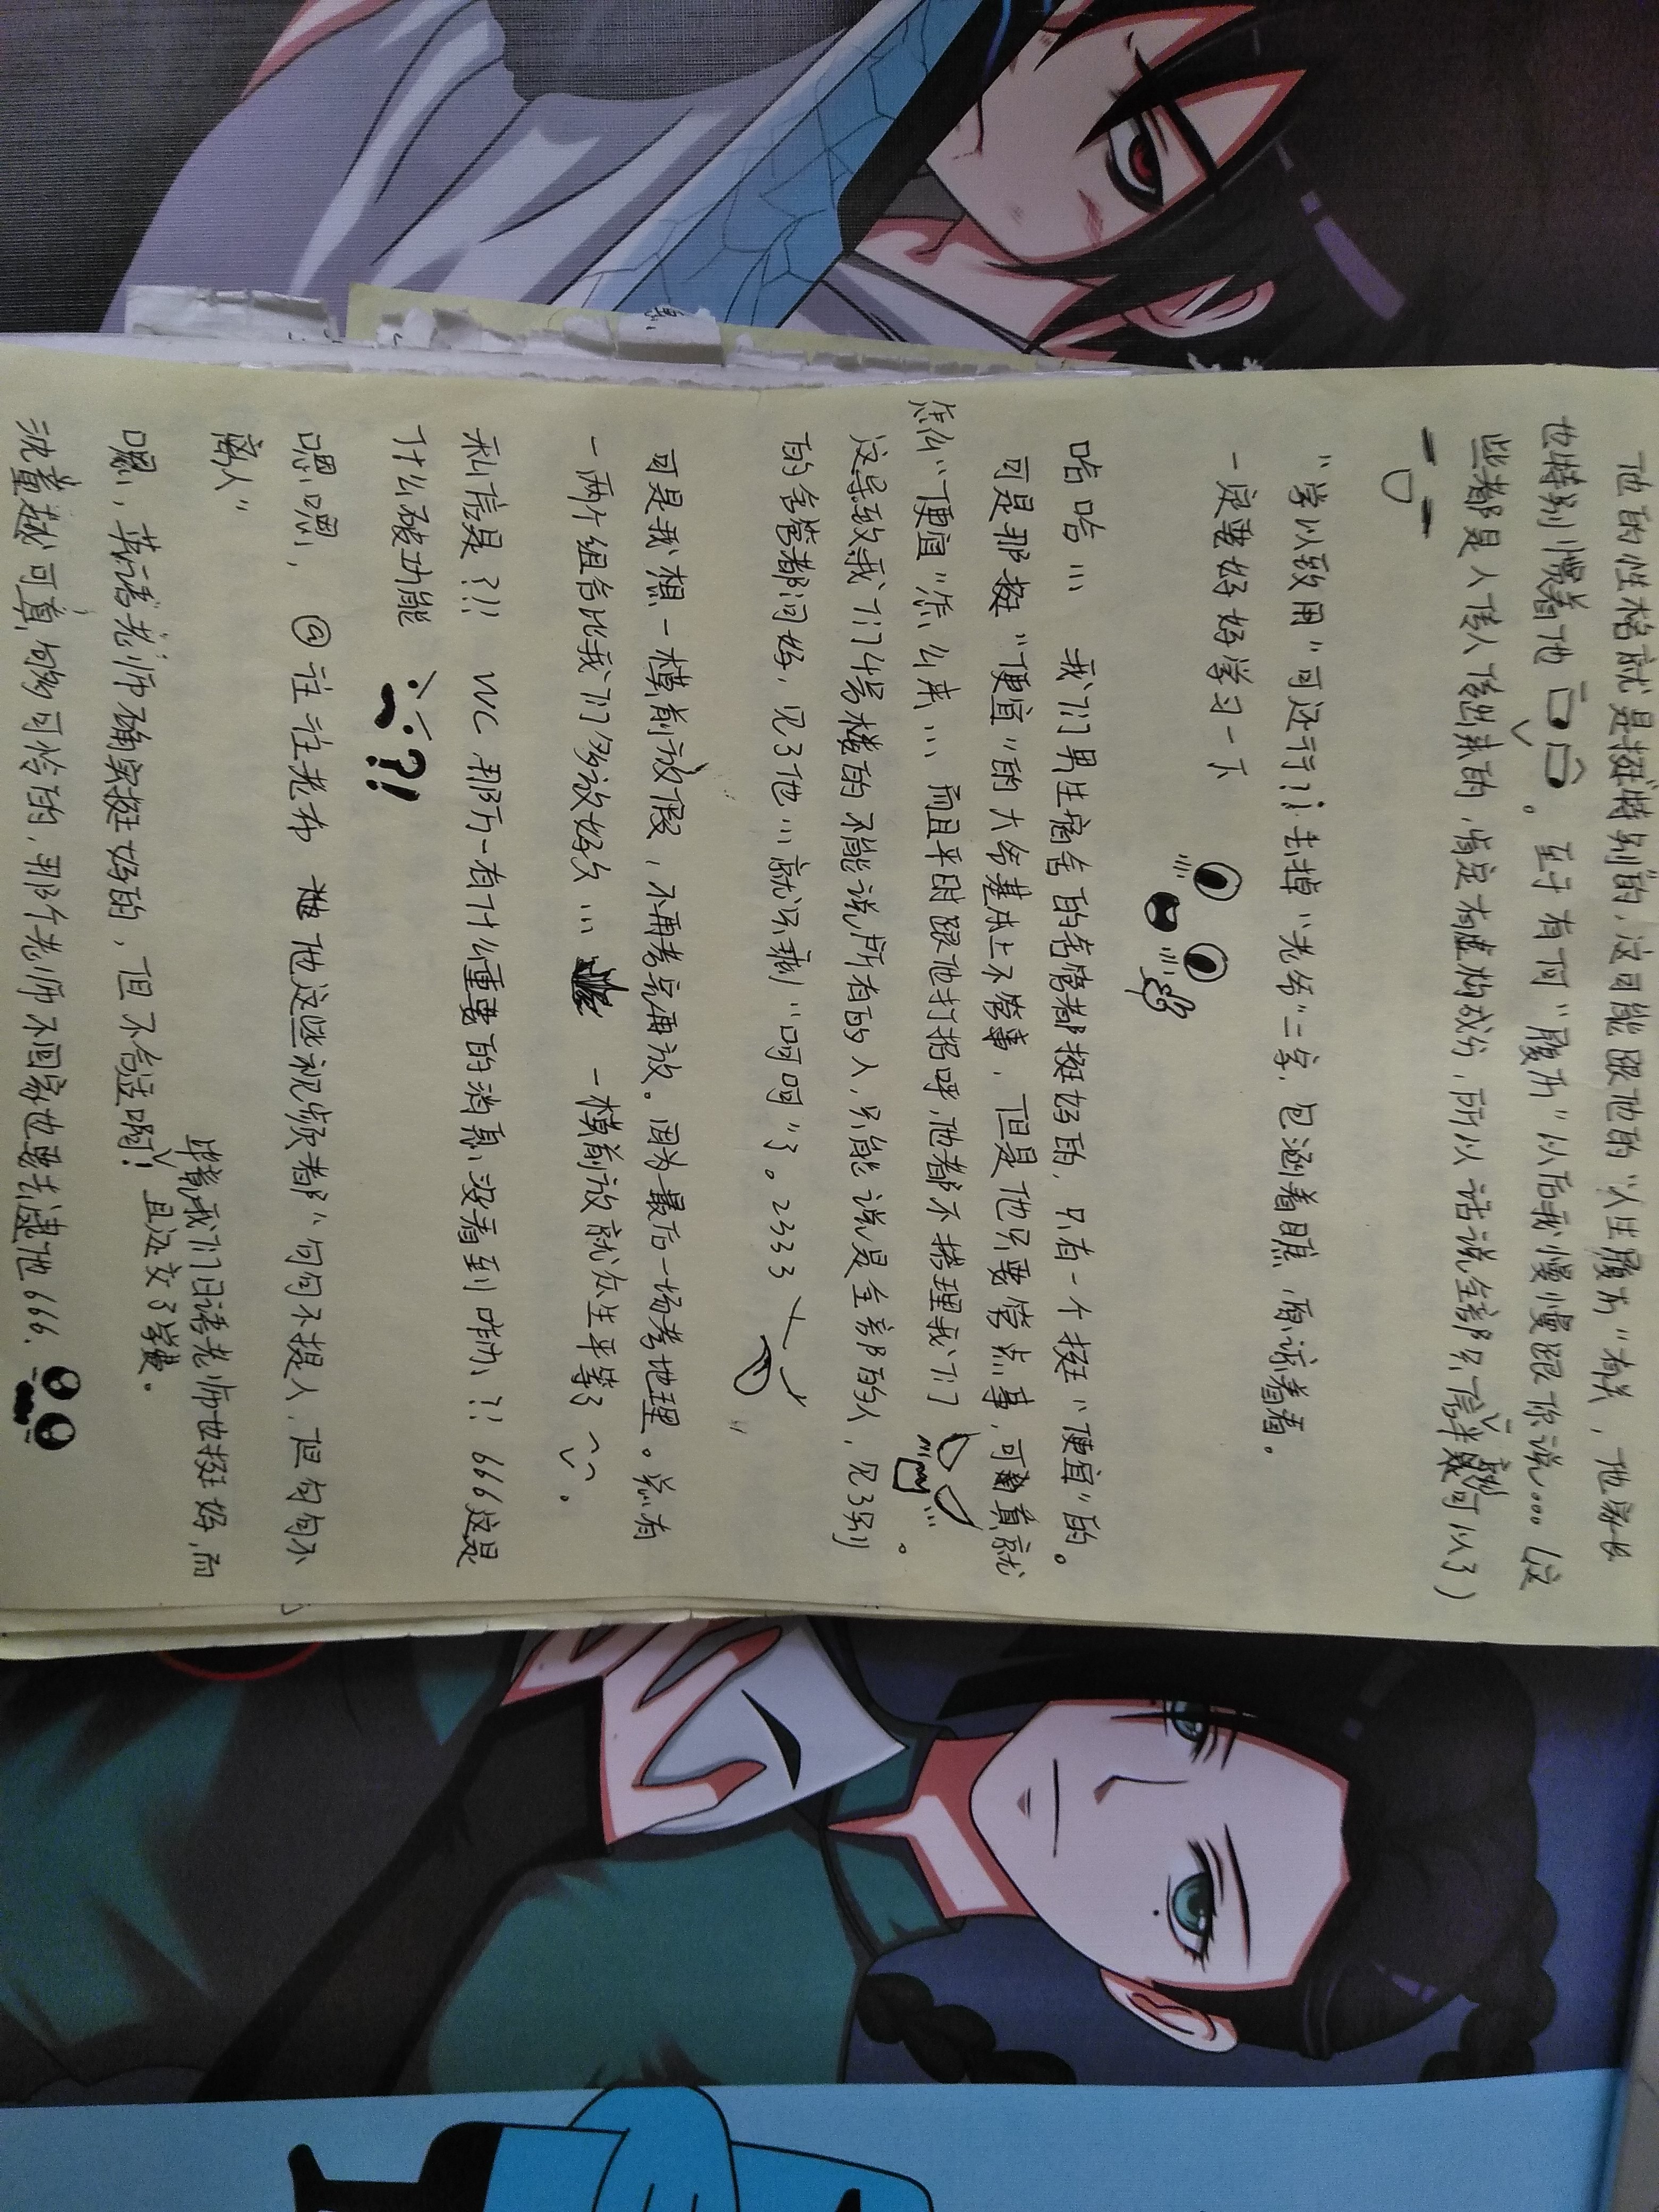 他的性格就是挺"特别"的，这可能跟他的"人生履历"有关，他家长
也特别惯着他。至于有何"履历"以后我慢慢跟你说...（这
些都是人传人传出来的，肯定有虚构成分，所以话说全部只信一半就可以了）
"学以致用"可还行?¡去掉"老爷"二字，包涵着瞧，原谅着看。
一定要好好学习一下
哈哈... 我们男生宿舍的舍管都挺好的，只有一个挺"便宜"的。
可是那挺"便宜"的大爷基本上不管事，但是他只要管点事，可真就
怎么"便宜"怎么来... 而且平时跟他打招呼，他都不搭理我们。
这导致我们4号楼的不能说所有的人，只能说是全部的人，见了别
的舍管都问好，见了他...就只剩"呵呵"了。2333
可是我想一模前放假，不再考完再放。因为最后一场考地理。总有
一两个组合比我们多放好久... 一模前放就众生平等了。
私信是?!! WC 那万一有什么重要的消息没看到咋办?! 666这是
什么破功能 ?!
嗯嗯，@往往老布 他这些视频都"句句不提人，但句句不
离人"
毕竟我们日语老师也挺好，而
且还交了学费。
嗯，英语老师确实挺好的，但不合适啊！
沈童越可真够可怜的，那个老师不回家也要去逮他666.